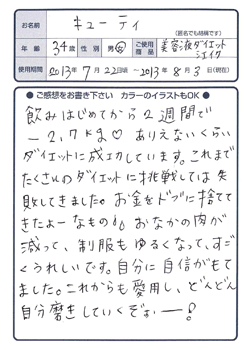 お名前 キューティ
(匿名でも結構です)
年齢 34歳 性別 男・女 ご使用商品 美容液ダイエットシェイク
使用期間 2013年 7月 22日頃 ～ 2013年 8月 3日(現在)
●ご感想をお書き下さい カラーのイラストもOK●
飲みはじめてから2週間で
-2.7kg♡ ありえないくらい
ダイエットに成功しています。これまで
たくさんのダイエットに挑戦しては失
敗してきました。お金をドブに捨てて
きたよーなもの!! おなかの肉が
減って、制服もゆるくなって、すご
くうれしいです。自分に自信がもて
ました。これからも愛用し、どんどん
自分磨きしていくぞぉー!